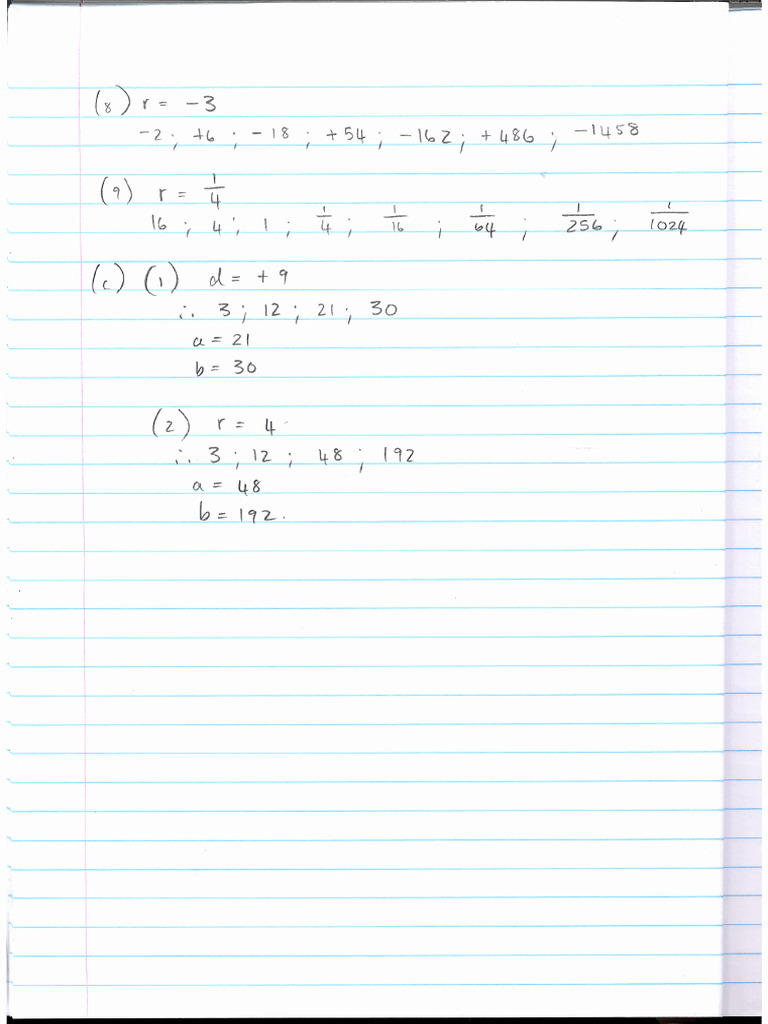 (8) r = -3
-2 ; +6 ; -18 ; +54 ; -162 ; +486 ; -1458
(9) r = 1/4
16 ; 4 ; 1 ; 1/4 ; 1/16 ; 1/64 ; 1/256 ; 1/1024
(c) (1) d = +9
∴ 3 ; 12 ; 21 ; 30
a = 21
b = 30
(2) r = 4
∴ 3 ; 12 ; 48 ; 192
a = 48
b = 192.